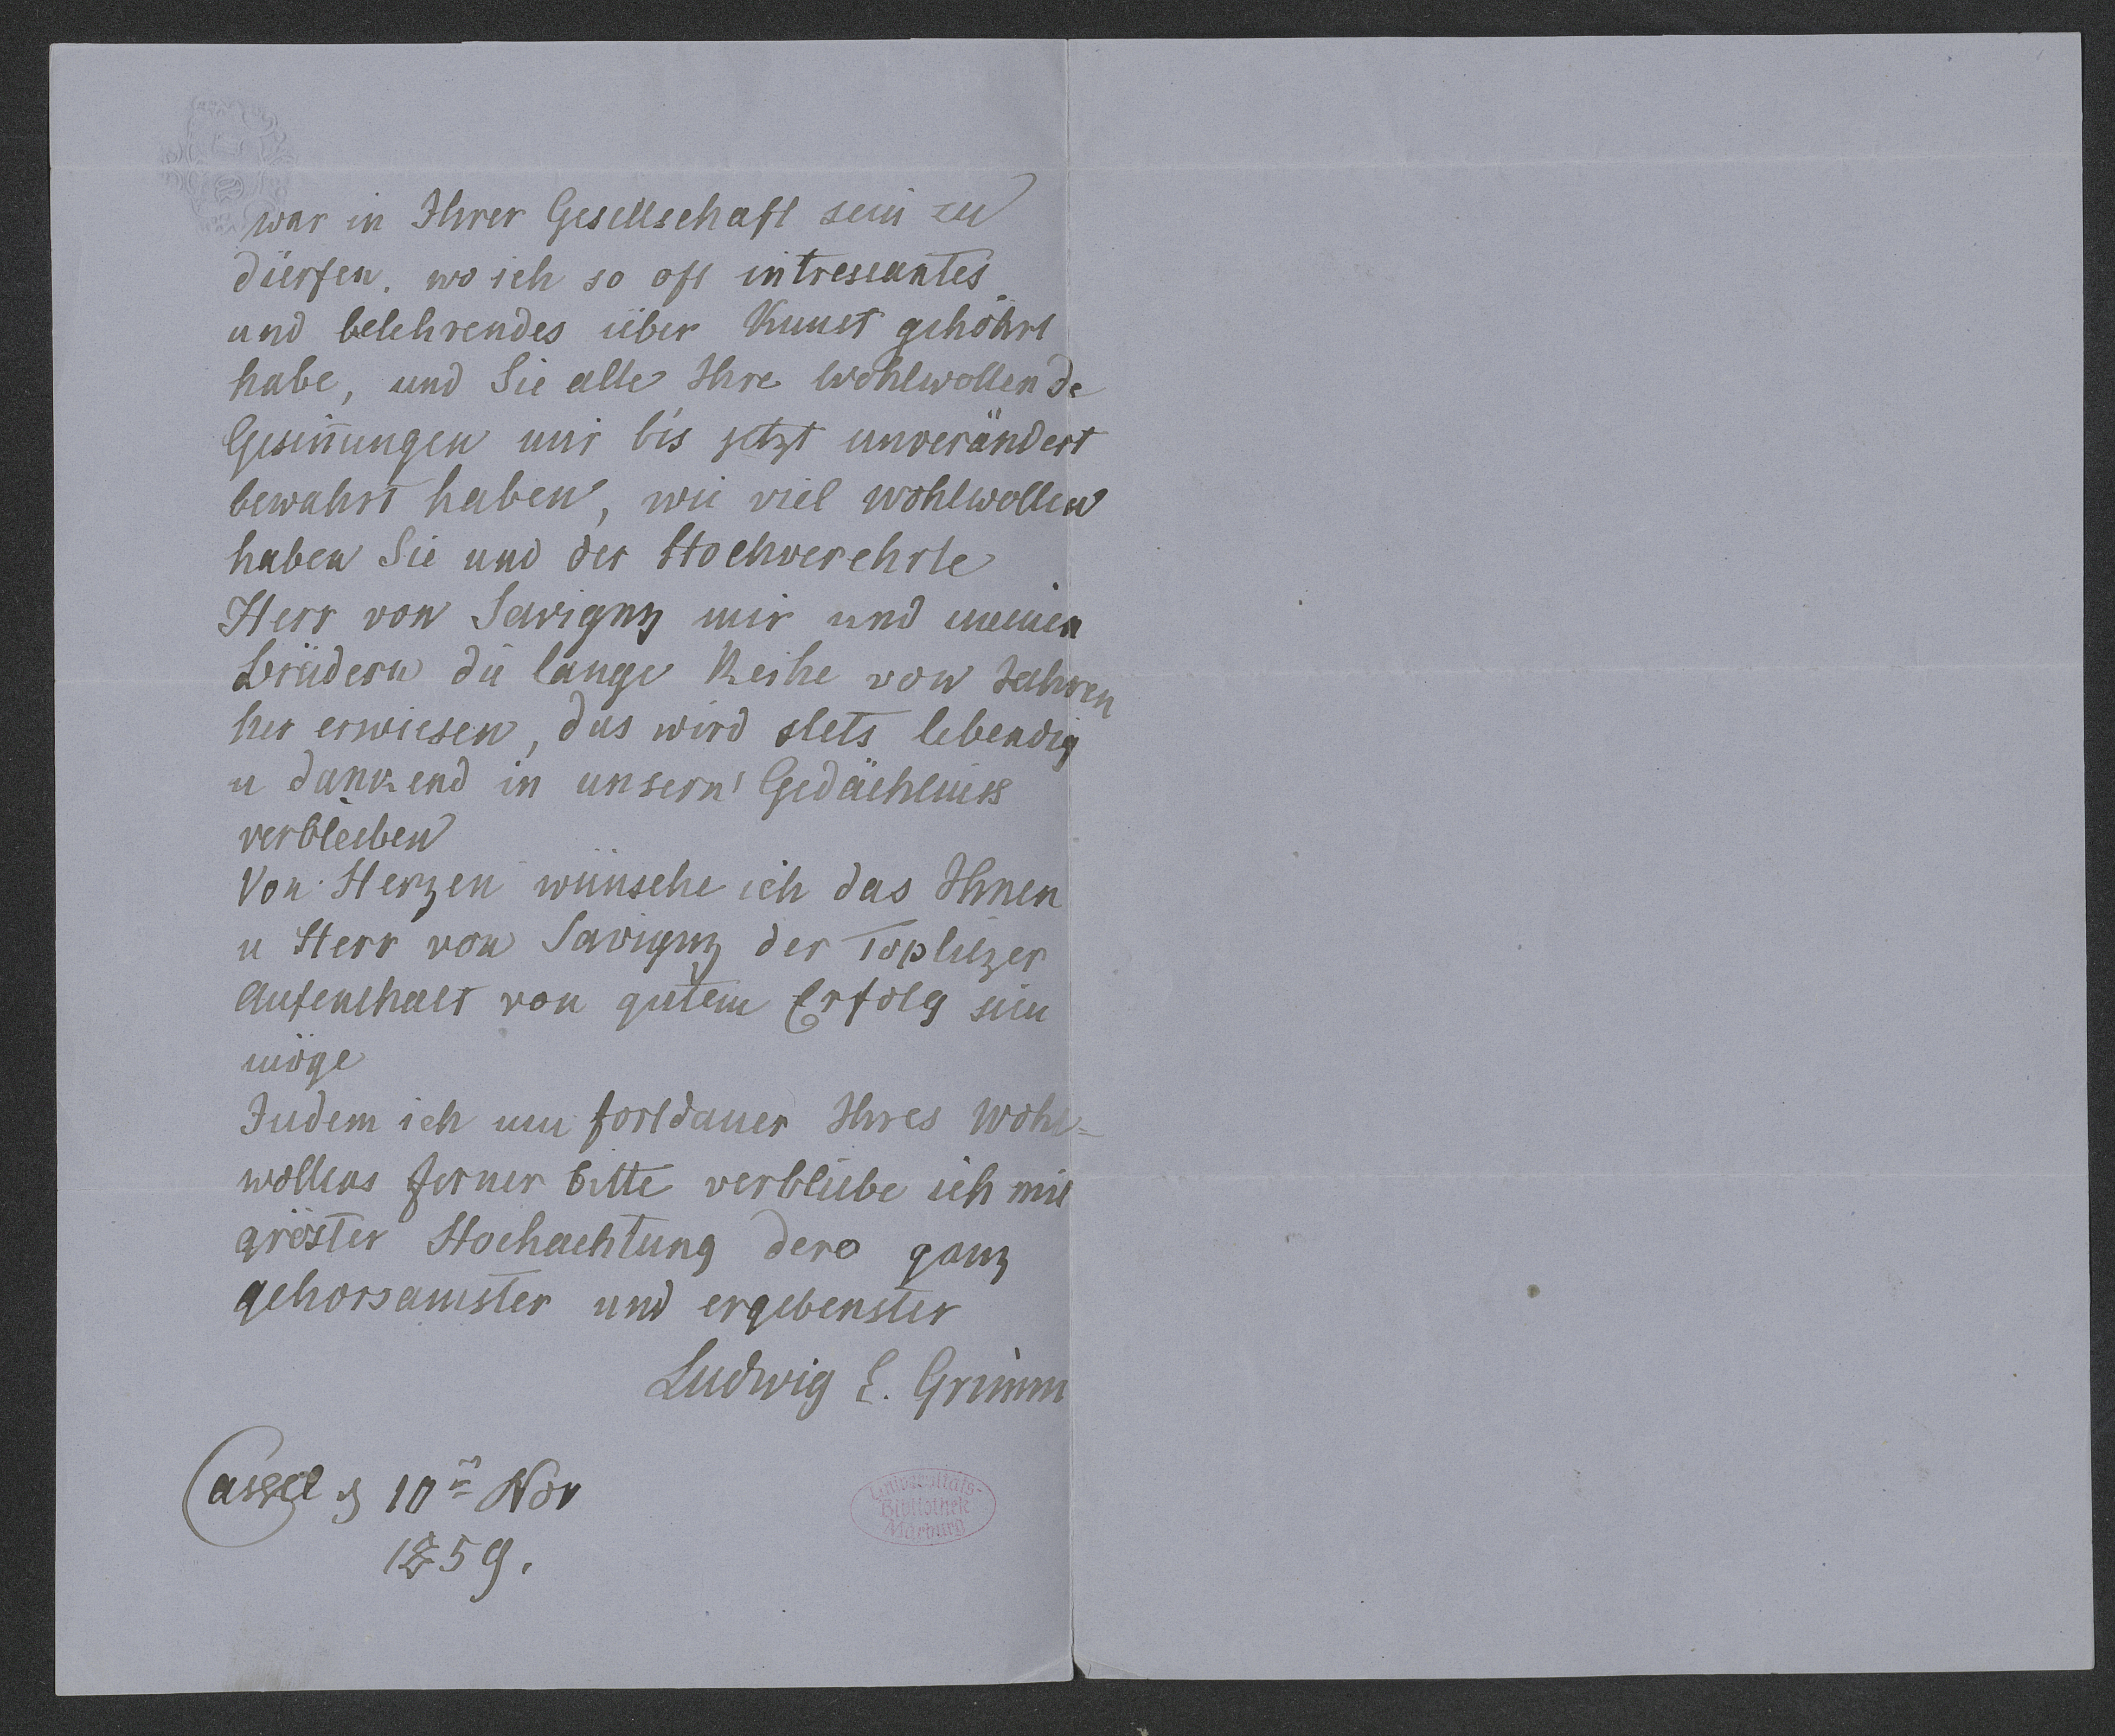 war in Ihrer Gesellschaft sein zu
dürfen. wo ich so oft intressantes
und belehrendes über Kunst gehöhrt
habe, und Sie alle Ihre wohlwollende
Gesin̄ungen mir bis jetzt unverändert
bewahrt haben, wie viel wohlwollen
haben Sie und der Hochverehrte
Herr von Savigny mir und meinen
Brüdern die lange Reihe von Jahren
her erwiesen, das wird stets lebendig
u dankend in unserm Gedächtniss
verbleiben
Von Herzen wünsche ich das Ihnen
u Herr von Savigny der Töplitzer
Aufenthalt von gutem Erfolg sein
möge
Indem ich um fortdauer Ihres Wohl=
wollens ferner bitte verbleibe ich mit
gröster Hochachtung dero ganz
gehorsamster und ergebenster
Ludwig E. Grimm
Cassel d 10ⁿ Nov
1859.
Universitäts-
Bibliothek
Marburg